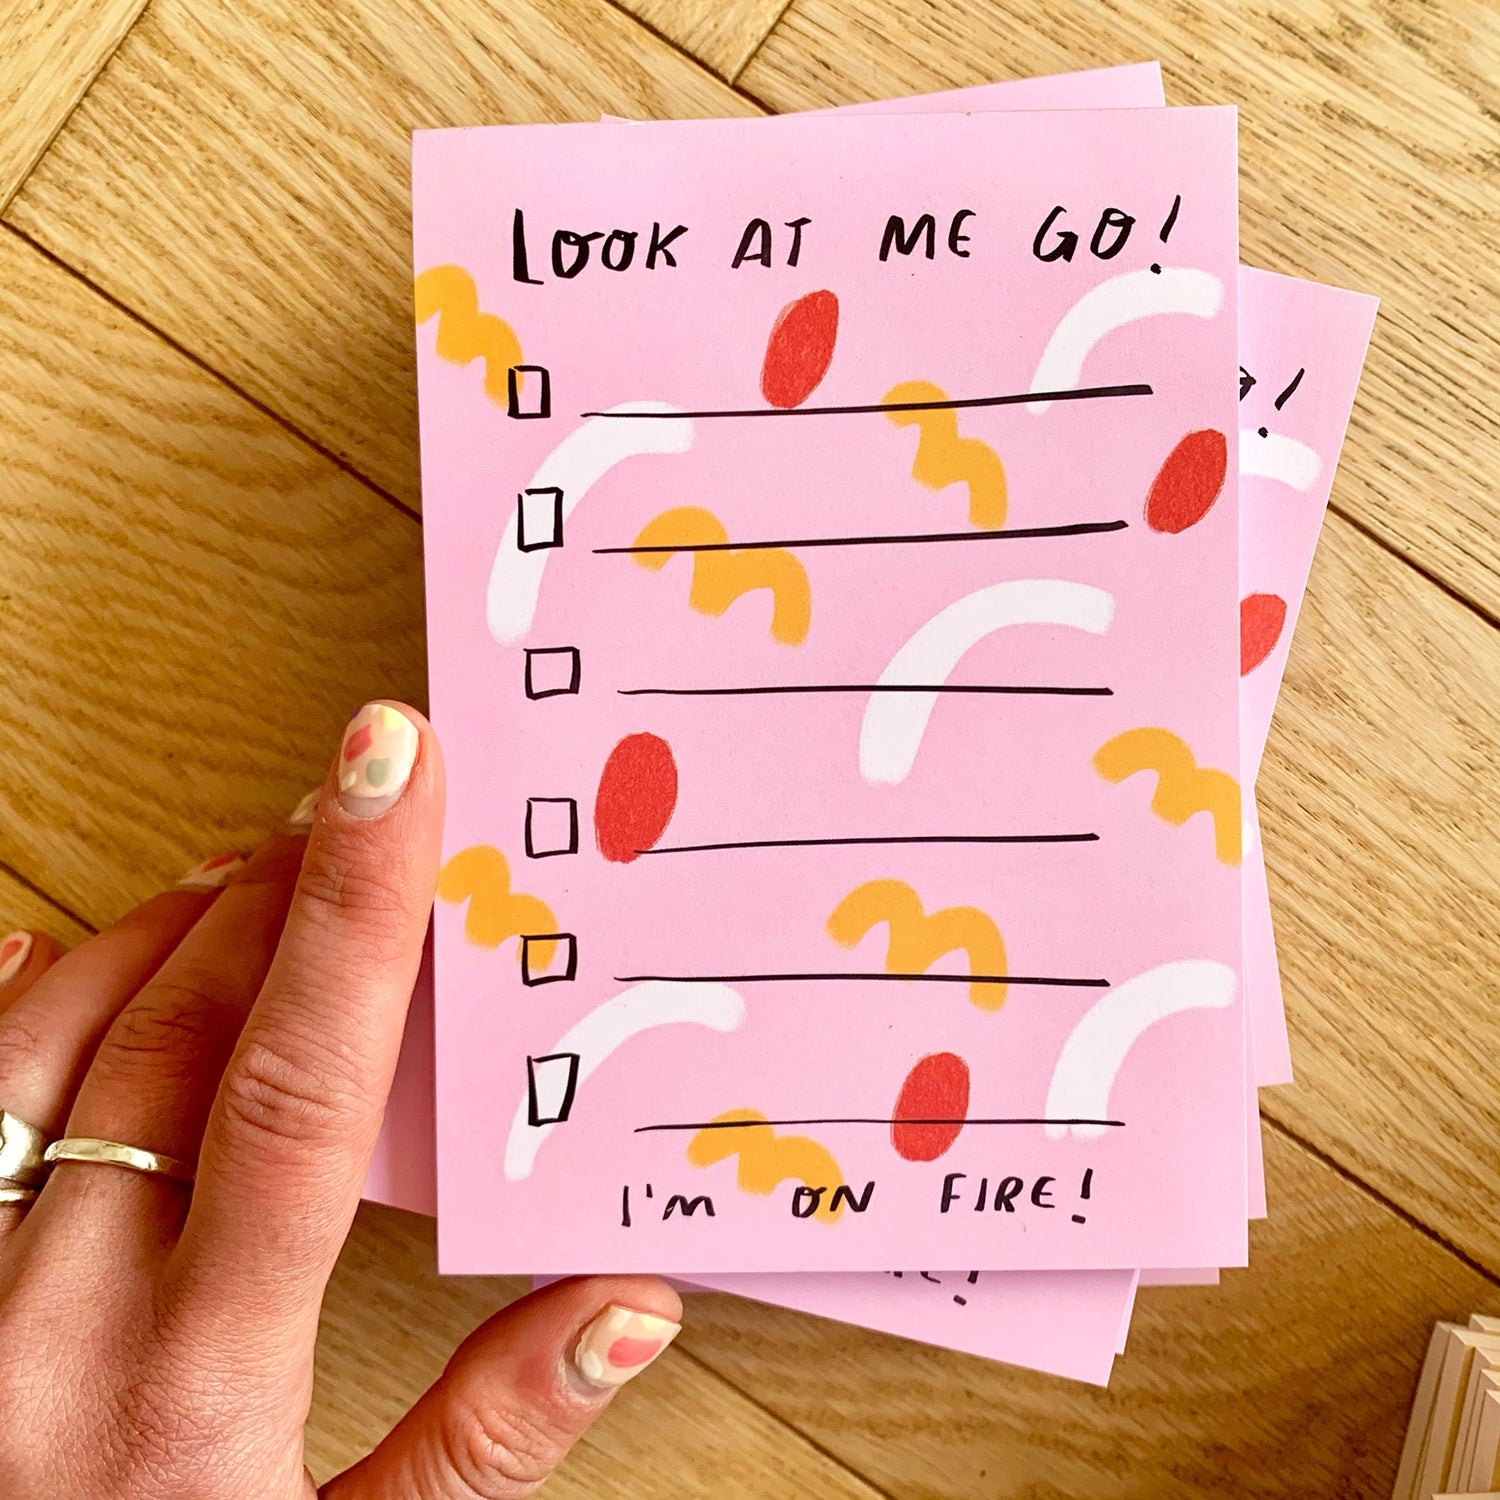 LOOK AT ME GO!
I'M ON FIRE!